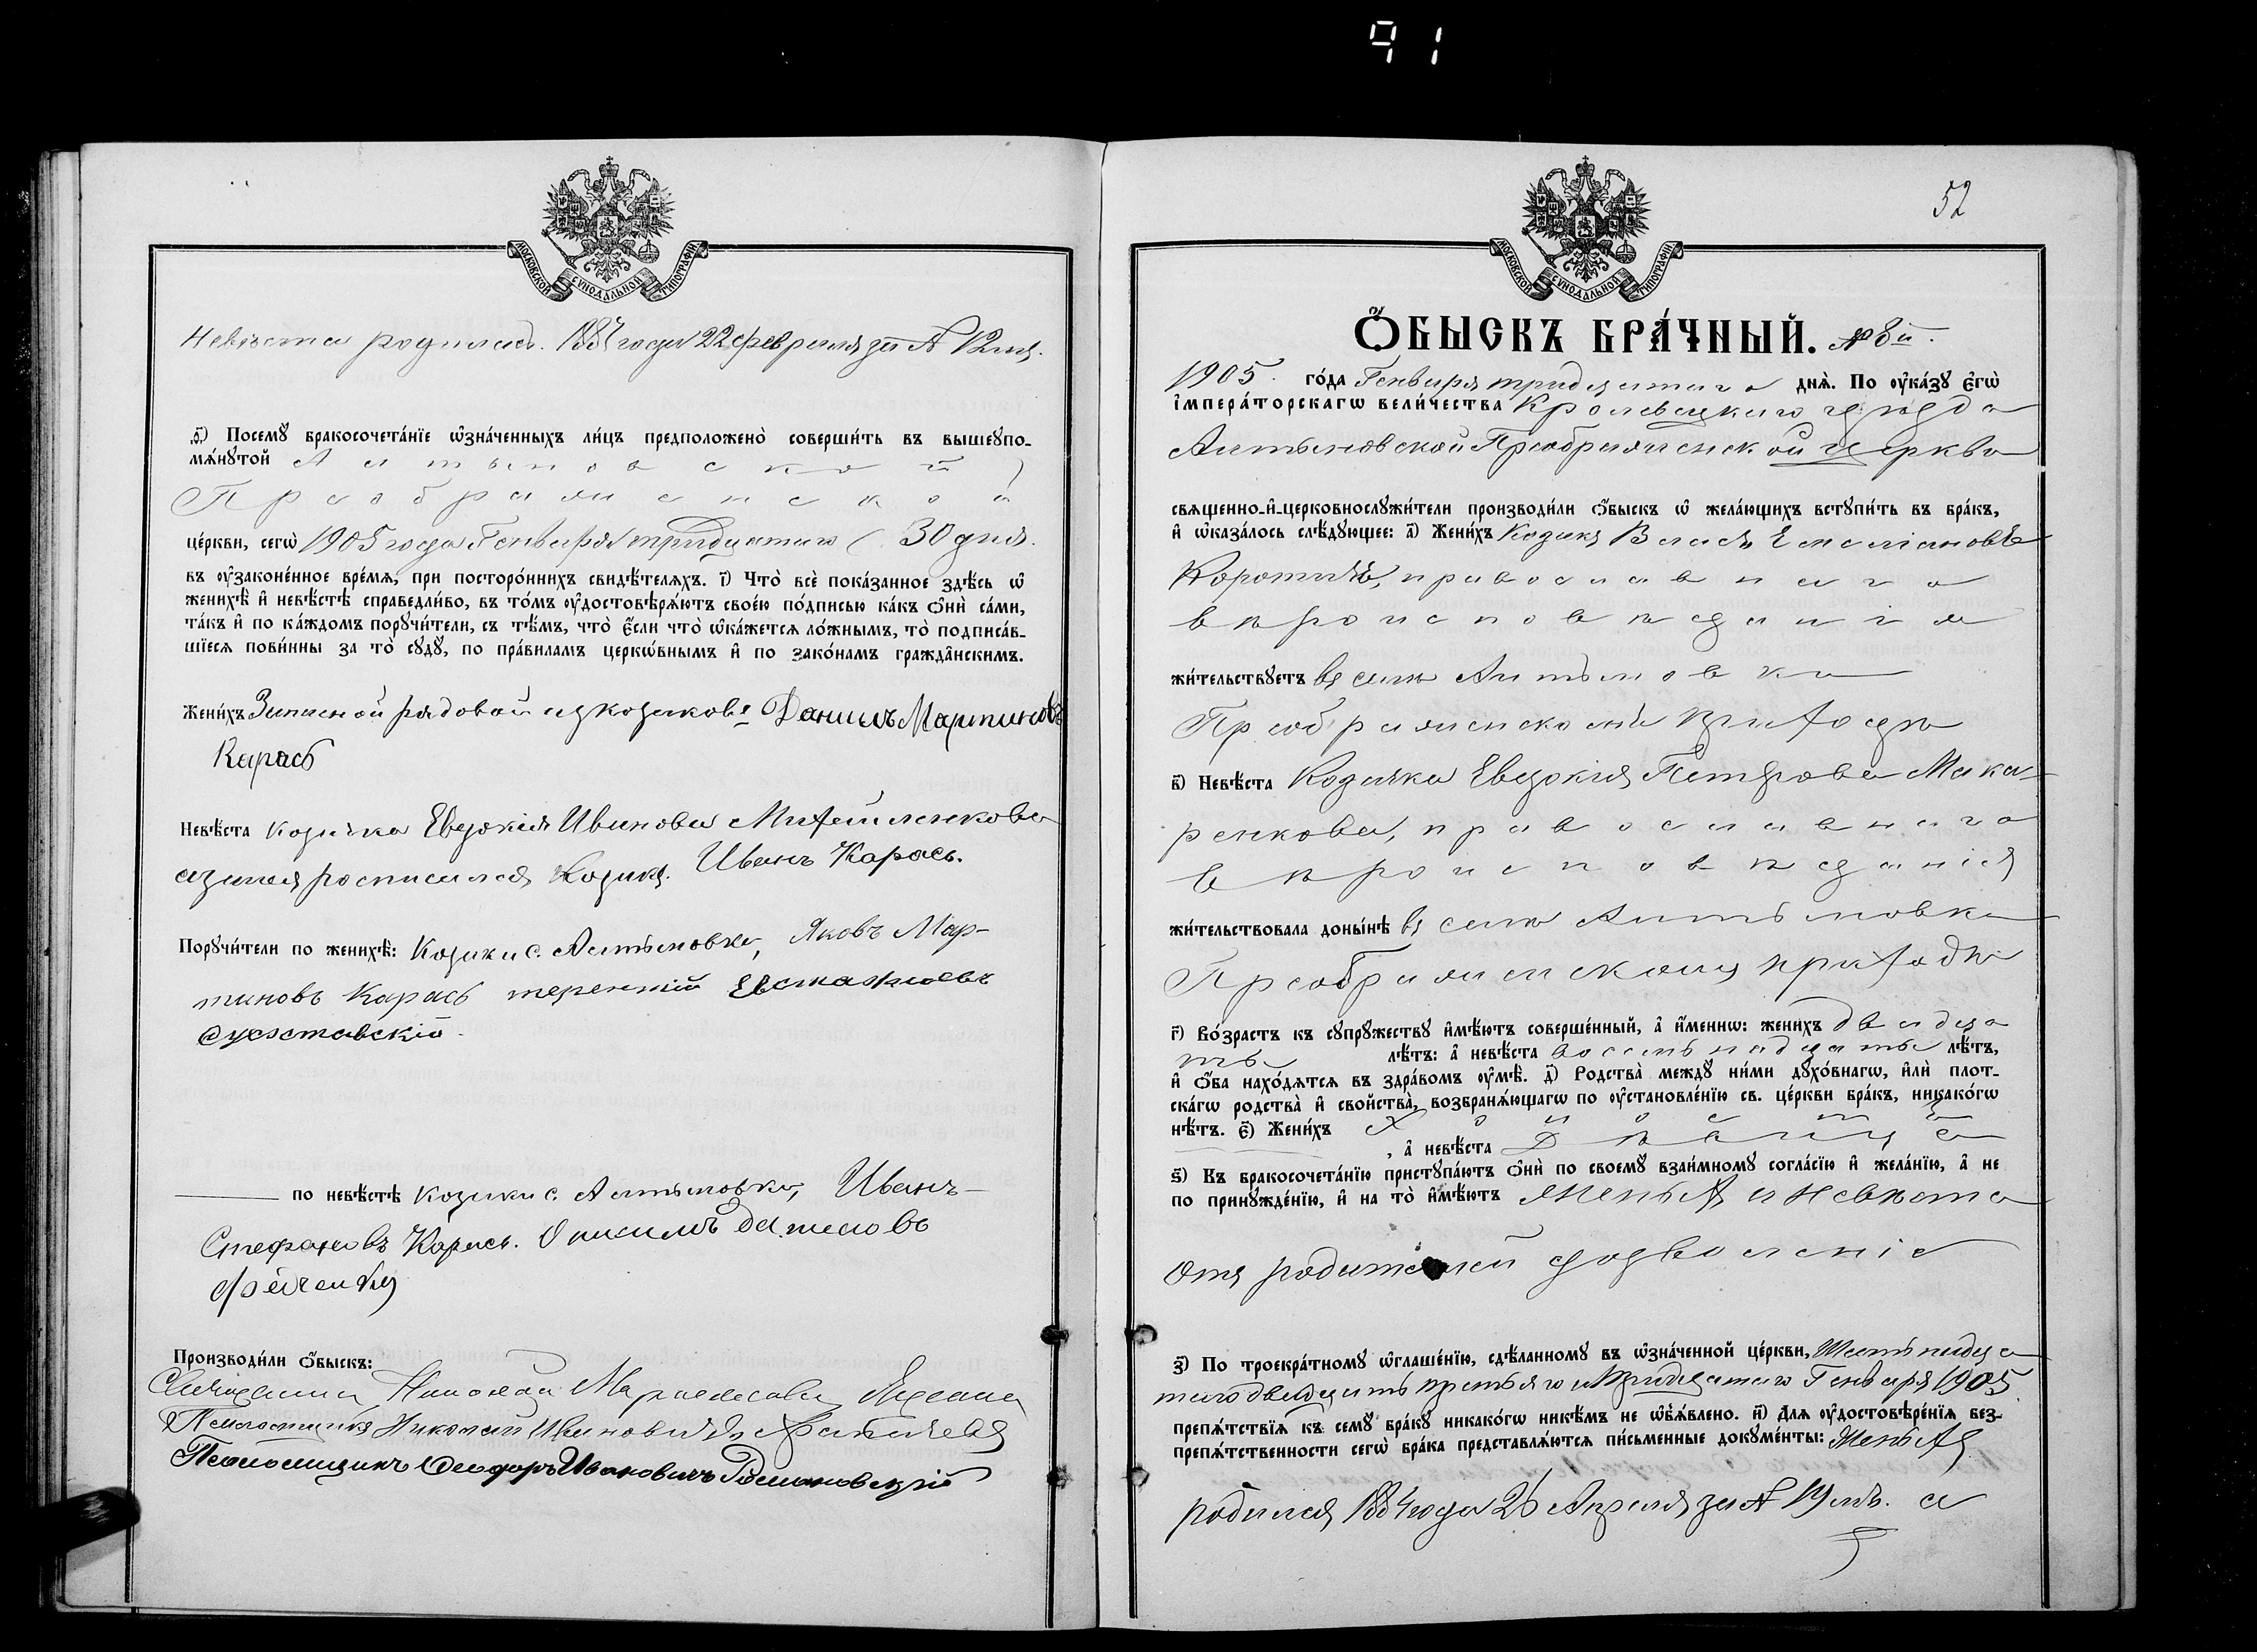 91
МОСКОВСКОЙ СѴНОДАЛЬНОЙ ТИПОГРАФІИ
Невѣста родилась 1887 года 22 февраля за № 12мъ.
ѳ҃) Посемꙋ̀ бракосочета́нїе ѡ҆зна́ченныхъ ли́цъ предположено̀ соверши́ть въ вышеꙋпо-
мѧ́нꙋтой Алтыновской
Преображенской
це́ркви, сегѡ̀ 1905 года Генваря тридцатаго (30 дня.
въ ѹ҆законе́нное вре́мѧ, при посторо́ннихъ свидѣ́телѧхъ. і҃) Что̀ всѐ пока́занное здѣ́сь ѡ҆
женихѣ̀ и҆ невѣ́стѣ справедли́во, въ то́мъ ѹ҆достовѣрѧ́ютъ свое́ю по́дписью ка́къ ѻ҆нѝ са́ми,
та́къ и҆ по ка́ждомъ порꙋчи́тели, съ тѣ́мъ, что̀ є҆́сли что̀ ѡ҆ка́жетсѧ ло́жнымъ, то̀ подписа́в-
шїесѧ пови́нны за то̀ сꙋдꙋ̀, по пра́виламъ церкѡ́внымъ и҆ по зако́намъ гражда̑нскимъ.
Жени́хъ Запасной рядовой изъ козаковъ Данилъ Мартиновъ
Карась
Невѣ́ста козачка Евдокія Иванова Михайленкова
а за нея росписался козакъ Иванъ Карась.
Порꙋчи́тели по женихѣ̀: Козаки с. Алтыновки, Яковъ Мар-
тиновъ Карась терентій Евстафіевъ
по невѣ́стѣ козаки с. Алтыновки, Иванъ
Стефановъ Карась. Онисимъ
Производи́ли ѻ҆́быскъ:
Священникъ Николай
Псаломщикъ Николай Ивановичъ
Псаломщикъ Ѳеодоръ Ивановичъ Романовскій
52
МОСКОВСКОЙ СѴНОДАЛЬНОЙ ТИПОГРАФІИ
Ѻ҆́БЫСКЪ БРА́ЧНЫЙ. № 8й.
1905. го́да Генваря тридцатаго днѧ̀. По ѹ҆ка́зꙋ є҆гѡ̀
і҆мпера́торскагѡ вели́чества Кролевецкаго уѣзда
Алтыновской Преображенской церкви
свѧщенно-и҆-церковнослꙋжи́тели производи́ли ѻ҆́быскъ ѡ҆ жела́ющихъ встꙋпи́ть въ бра́къ,
и҆ ѡ҆каза́лось слѣ́дꙋющее: а҃) Жени́хъ Козакъ Власъ Емеліановъ
православнаго
вѣроисповѣданія
жи́тельствꙋетъ въ селѣ Алтыновки
Преображенскомъ приходѣ
в҃) Невѣ́ста Козачка Евдокія Петрова Мака-
ренкова, православнаго
вѣроисповѣданія
жи́тельствовала доны́нѣ въ селѣ Алтыновки
Преображенскому приходѣ
г҃) Во́зрастъ къ сꙋпрꙋ́жествꙋ и҆мѣ́ютъ соверше́нный, а҆ и҆́меннѡ: жени́хъ двадца
ть лѣ́тъ: а҆ невѣ́ста восемнадцать лѣ́тъ,
и҆ ѻ҆́ба нахо́дѧтсѧ въ здра́вомъ ѹ҆мѣ̀. д҃) Родства̀ междꙋ̀ ни́ми дꙋхо́внагѡ, и҆лѝ плот-
ска́гѡ родства̀ и҆ сво́йства̀, возбранѧ́ющагѡ по ѹ҆становле́нїю св. це́ркви бра́къ, никако́гѡ
нѣ́тъ. є҃) Жени́хъ холостъ
, а҆ невѣ́ста дѣвица
ѕ҃) Къ бракосочета́нїю пристꙋпа́ютъ ѻ҆нѝ по своемꙋ̀ взаи́мномꙋ согла́сїю и҆ жела́нїю, а҆ не
по принꙋжде́нїю, и҆ на то̀ и҆мѣ́ютъ женихъ и невѣста
отъ родителей дозволеніе
з҃) По троекра́тномꙋ ѡ҆глаше́нїю, сдѣ́ланномꙋ въ ѡ҆зна́ченной це́ркви, Шестнадца
таго двадцать третьяго и тридцатаго Генваря 1905
препѧ́тствїѧ къ семꙋ̀ бра́кꙋ никако́гѡ никѣ́мъ не ѡ҆б̾ѧ́влено. и҃) Длѧ ѹ҆достовѣре́нїѧ без-
препѧ́тственности сегѡ̀ бра́ка представлѧ́ютсѧ пи́сьменные докꙋме́нты: Женихъ
родился 1884 года 26 Апреля за № 19 мъ. а